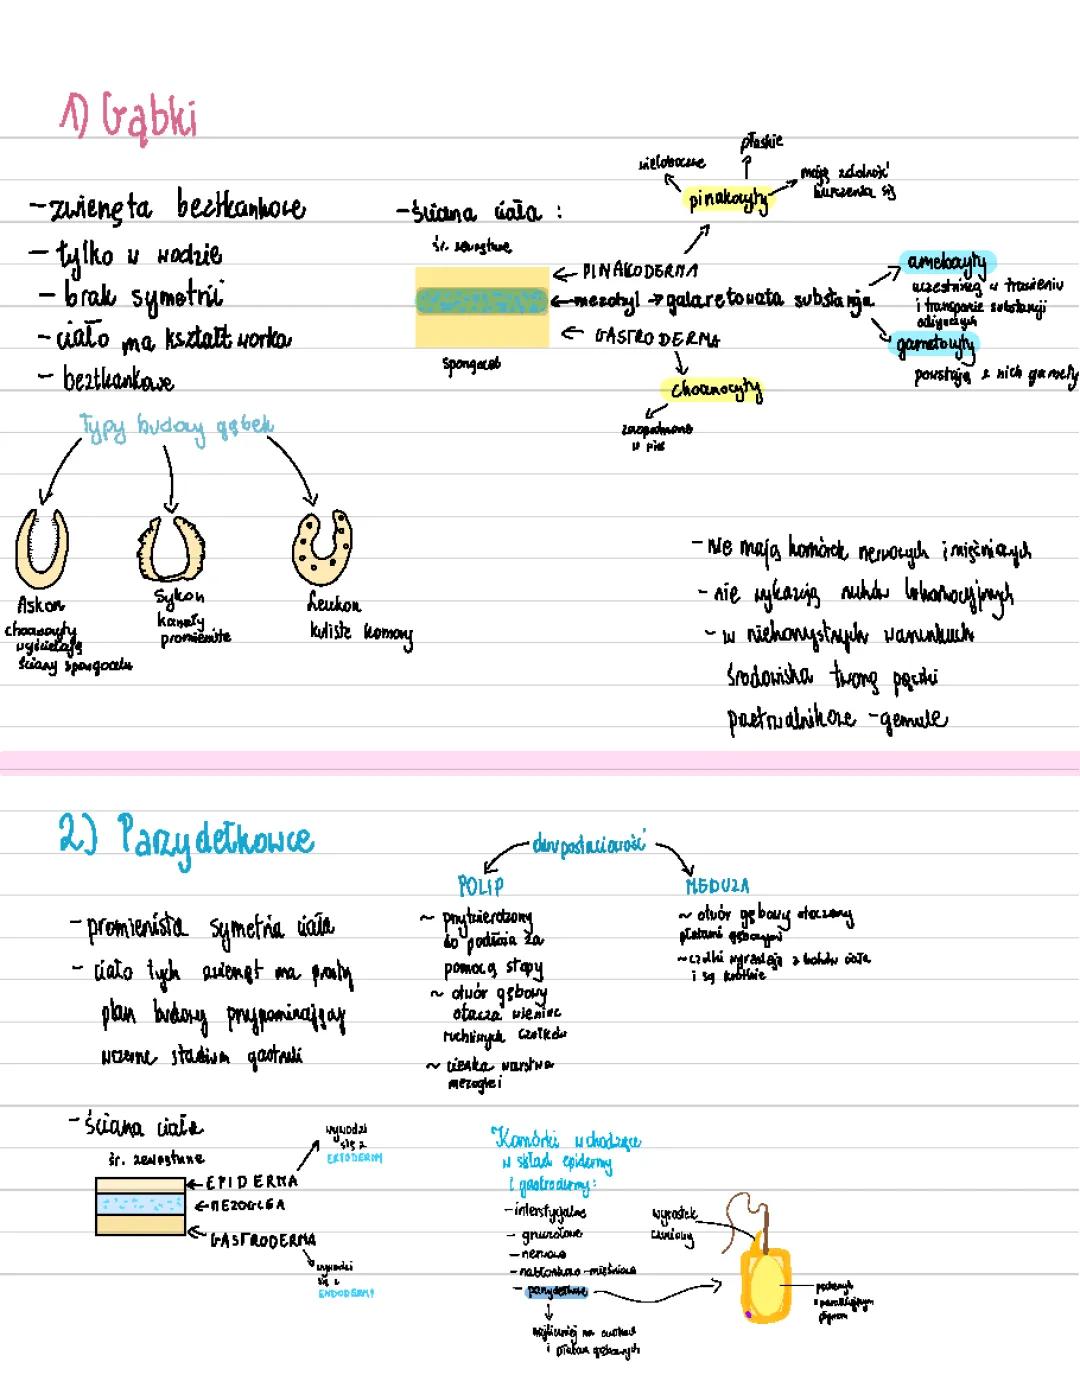 1) Gąbki
- zwierzęta beztkankowe
- tylko w wodzie
- brak symetrii
- ciało ma kształt worka
- beztkankowe
- ściana ciała :
śr. zewnętrzne
spongocel
wieloboczne
płaskie
mają zdolność
kurczenia się
pinakocyty
← PINAKODERMA
← mezohyl → galaretowata substancja
← GASTRODERMA
choanocyty
zaopatrzone
w wić
amebocyty
uczestniczą w trawieniu
i transporcie substancji
odżywczych
gametocyty
powstają z nich gamety
Typy budowy gąbek
Askon
choanocyty
wyściełają
ściany spongocelu
Sykon
kanały
promieniste
Leukon
kuliste komory
- nie mają komórek nerwowych i mięśniowych
- nie wykazują ruchów lokomocyjnych
- w niekorzystnych warunkach
środowiska tworzą pączki
przetrwalnikowe - gemule
2) Parzydełkowce
- promienista symetria ciała
- ciało tych zwierząt ma prosty
plan budowy przypominający
wczesne stadium gastruli
dwupostaciowość
POLIP
~ przytwierdzony
do podłoża za
pomocą stopy
~ otwór gębowy
otacza wieniec
ruchliwych czułków
~ cienka warstwa
mezoglei
MEDUZA
~ otwór gębowy otoczony
płatami gębowymi
~ czułki wyrastają z boków ciała
i są krótkie
- ściana ciała
śr. zewnętrzne
← EPIDERMA
← MEZOGLEA
← GASTRODERMA
wywodzi
się z
EKTODERMY
wywodzi
się z
ENDODERMY
Komórki wchodzące
w skład epidermy
i gastrodermy:
- interstycjalne
- gruczołowe
- nerwowe
- nabłonkowo-mięśniowe
- parzydełkowe
najliczniej na czułkach
i płatach gębowych
wyrostek
czuciowy
z paraliżującym
płynem